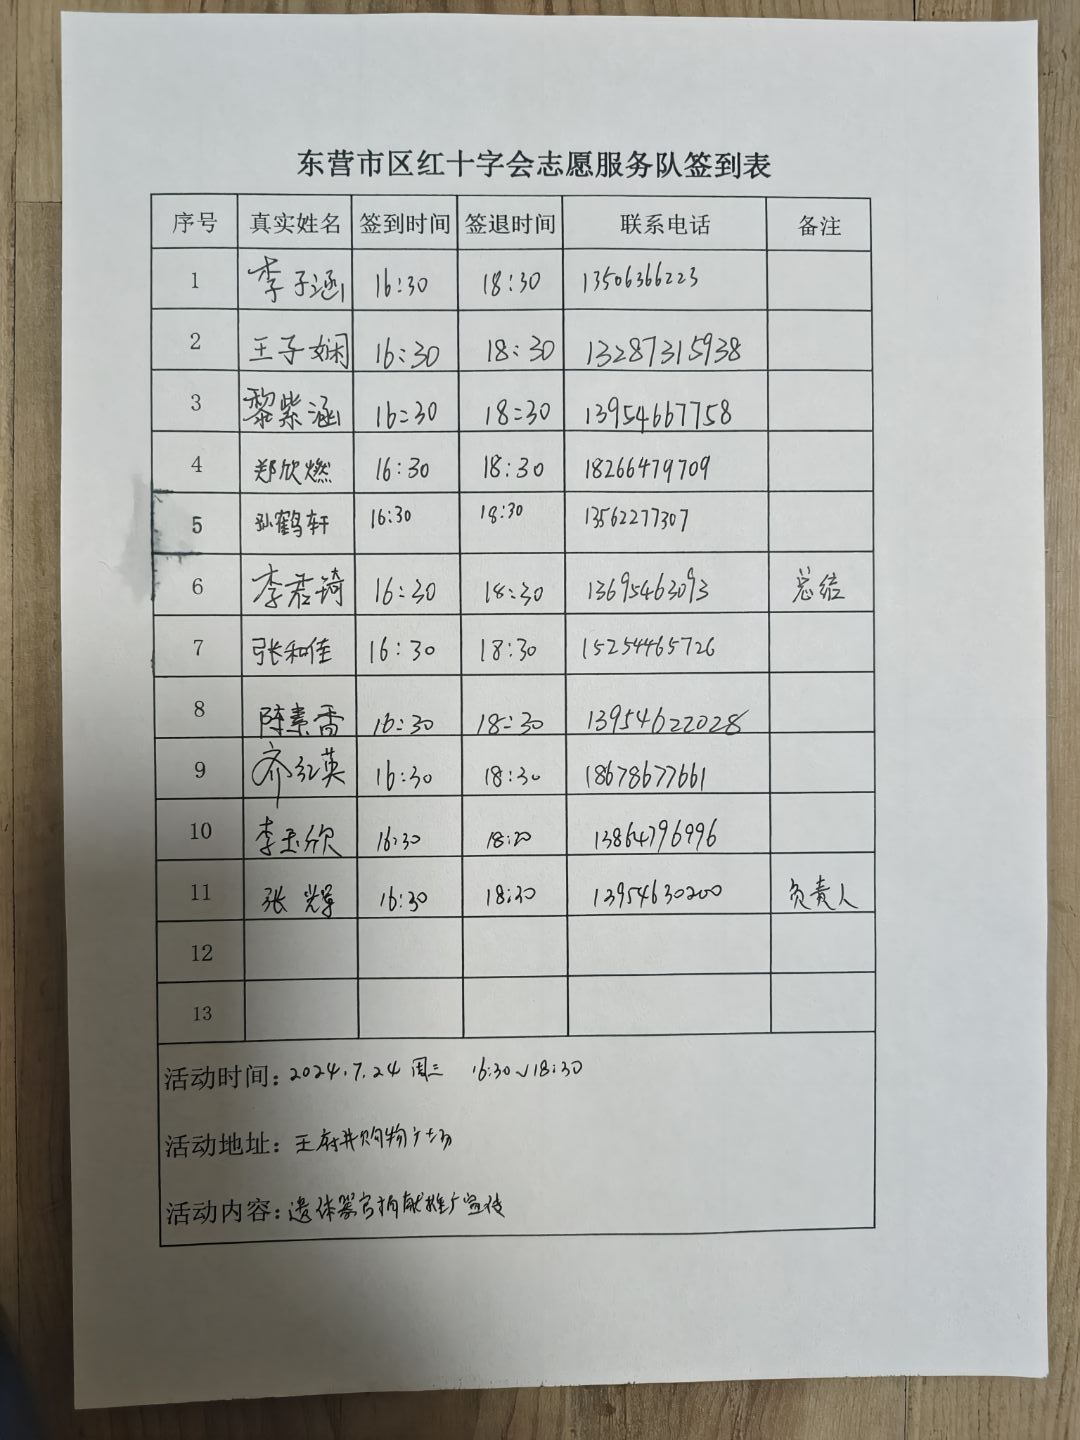 东营市区红十字会志愿服务队签到表
序号 真实姓名 签到时间 签退时间 联系电话 备注
1 李子涵 16:30 18:30 13506366223
2 王子娴 16:30 18:30 13287315938
3 黎紫涵 16:30 18:30 13954667758
4 郑欣燃 16:30 18:30 18266479709
5 孙鹤轩 16:30 18:30 13562277307
6 李君锜 16:30 18:30 13695463093 总结
7 张和佳 16:30 18:30 15254465726
8 陈素香 16:30 18:30 13954622028
9 齐红英 16:30 18:30 18678677661
10 李玉欣 16:30 18:30 13864796996
11 张辉 16:30 18:30 13954630200 负责人
12
13
活动时间：2024.7.24 周三 16:30~18:30
活动地址：王府井购物广场
活动内容：遗体器官捐献推广宣传